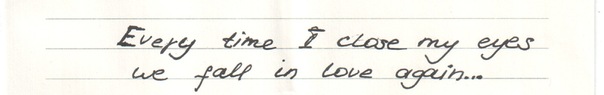 Every time I close my eyes
we fall in love again...